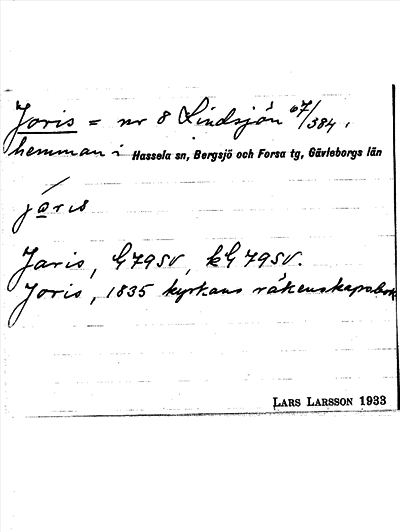 Joris = nr 8 Lindsjön 67/384,
hemman i Hassela sn, Bergsjö och Forsa tg, Gävleborgs län
jaris
Jaris, G79SV, kG79SV.
Joris, 1835 kyrkans räkenskapsbok
LARS LARSSON 1933